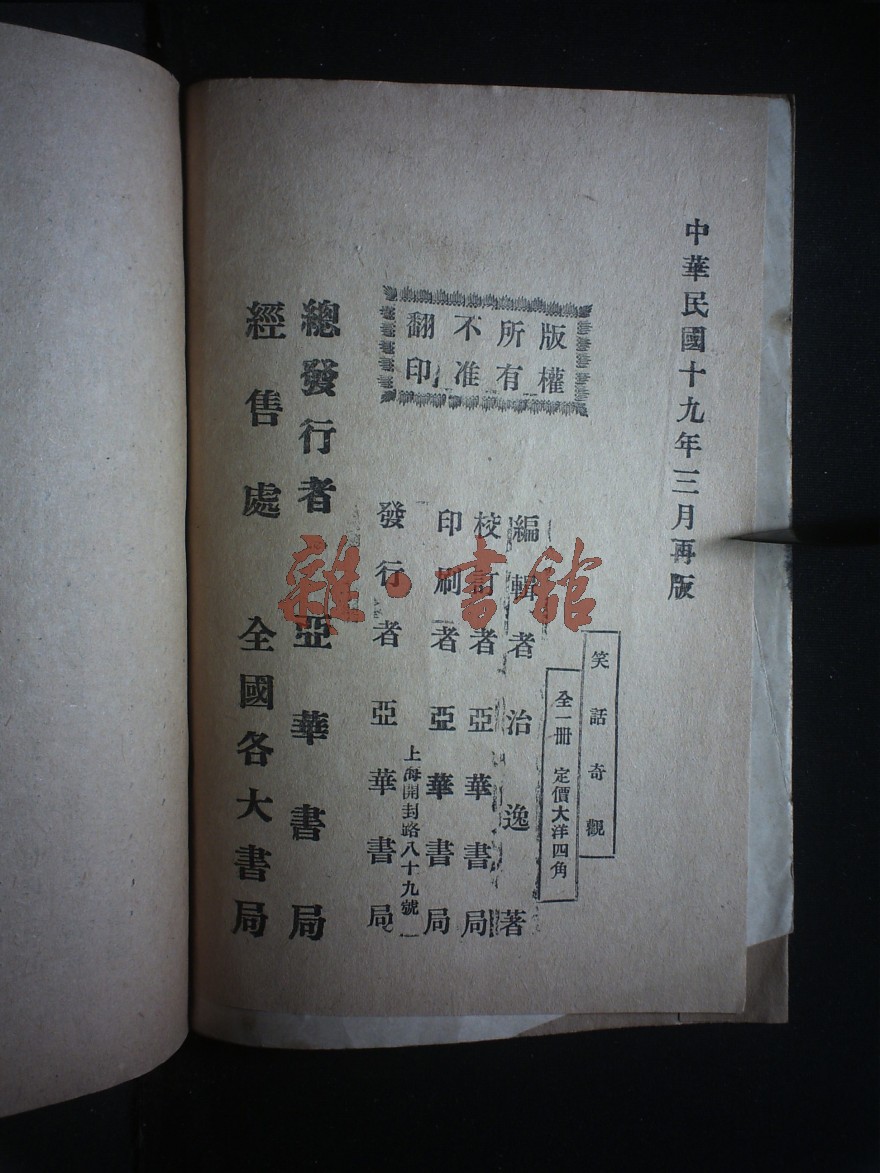 中華民國十九年三月再版
笑話奇觀
全一册 定價大洋四角
版權
所有
不准
翻印
編輯者 治逸 著
校訂者 亞華書局
印刷者 亞華書局
上海開封路八十九號
發行者 亞華書局
總發行者 亞華書局
經售處 全國各大書局
雜·書館